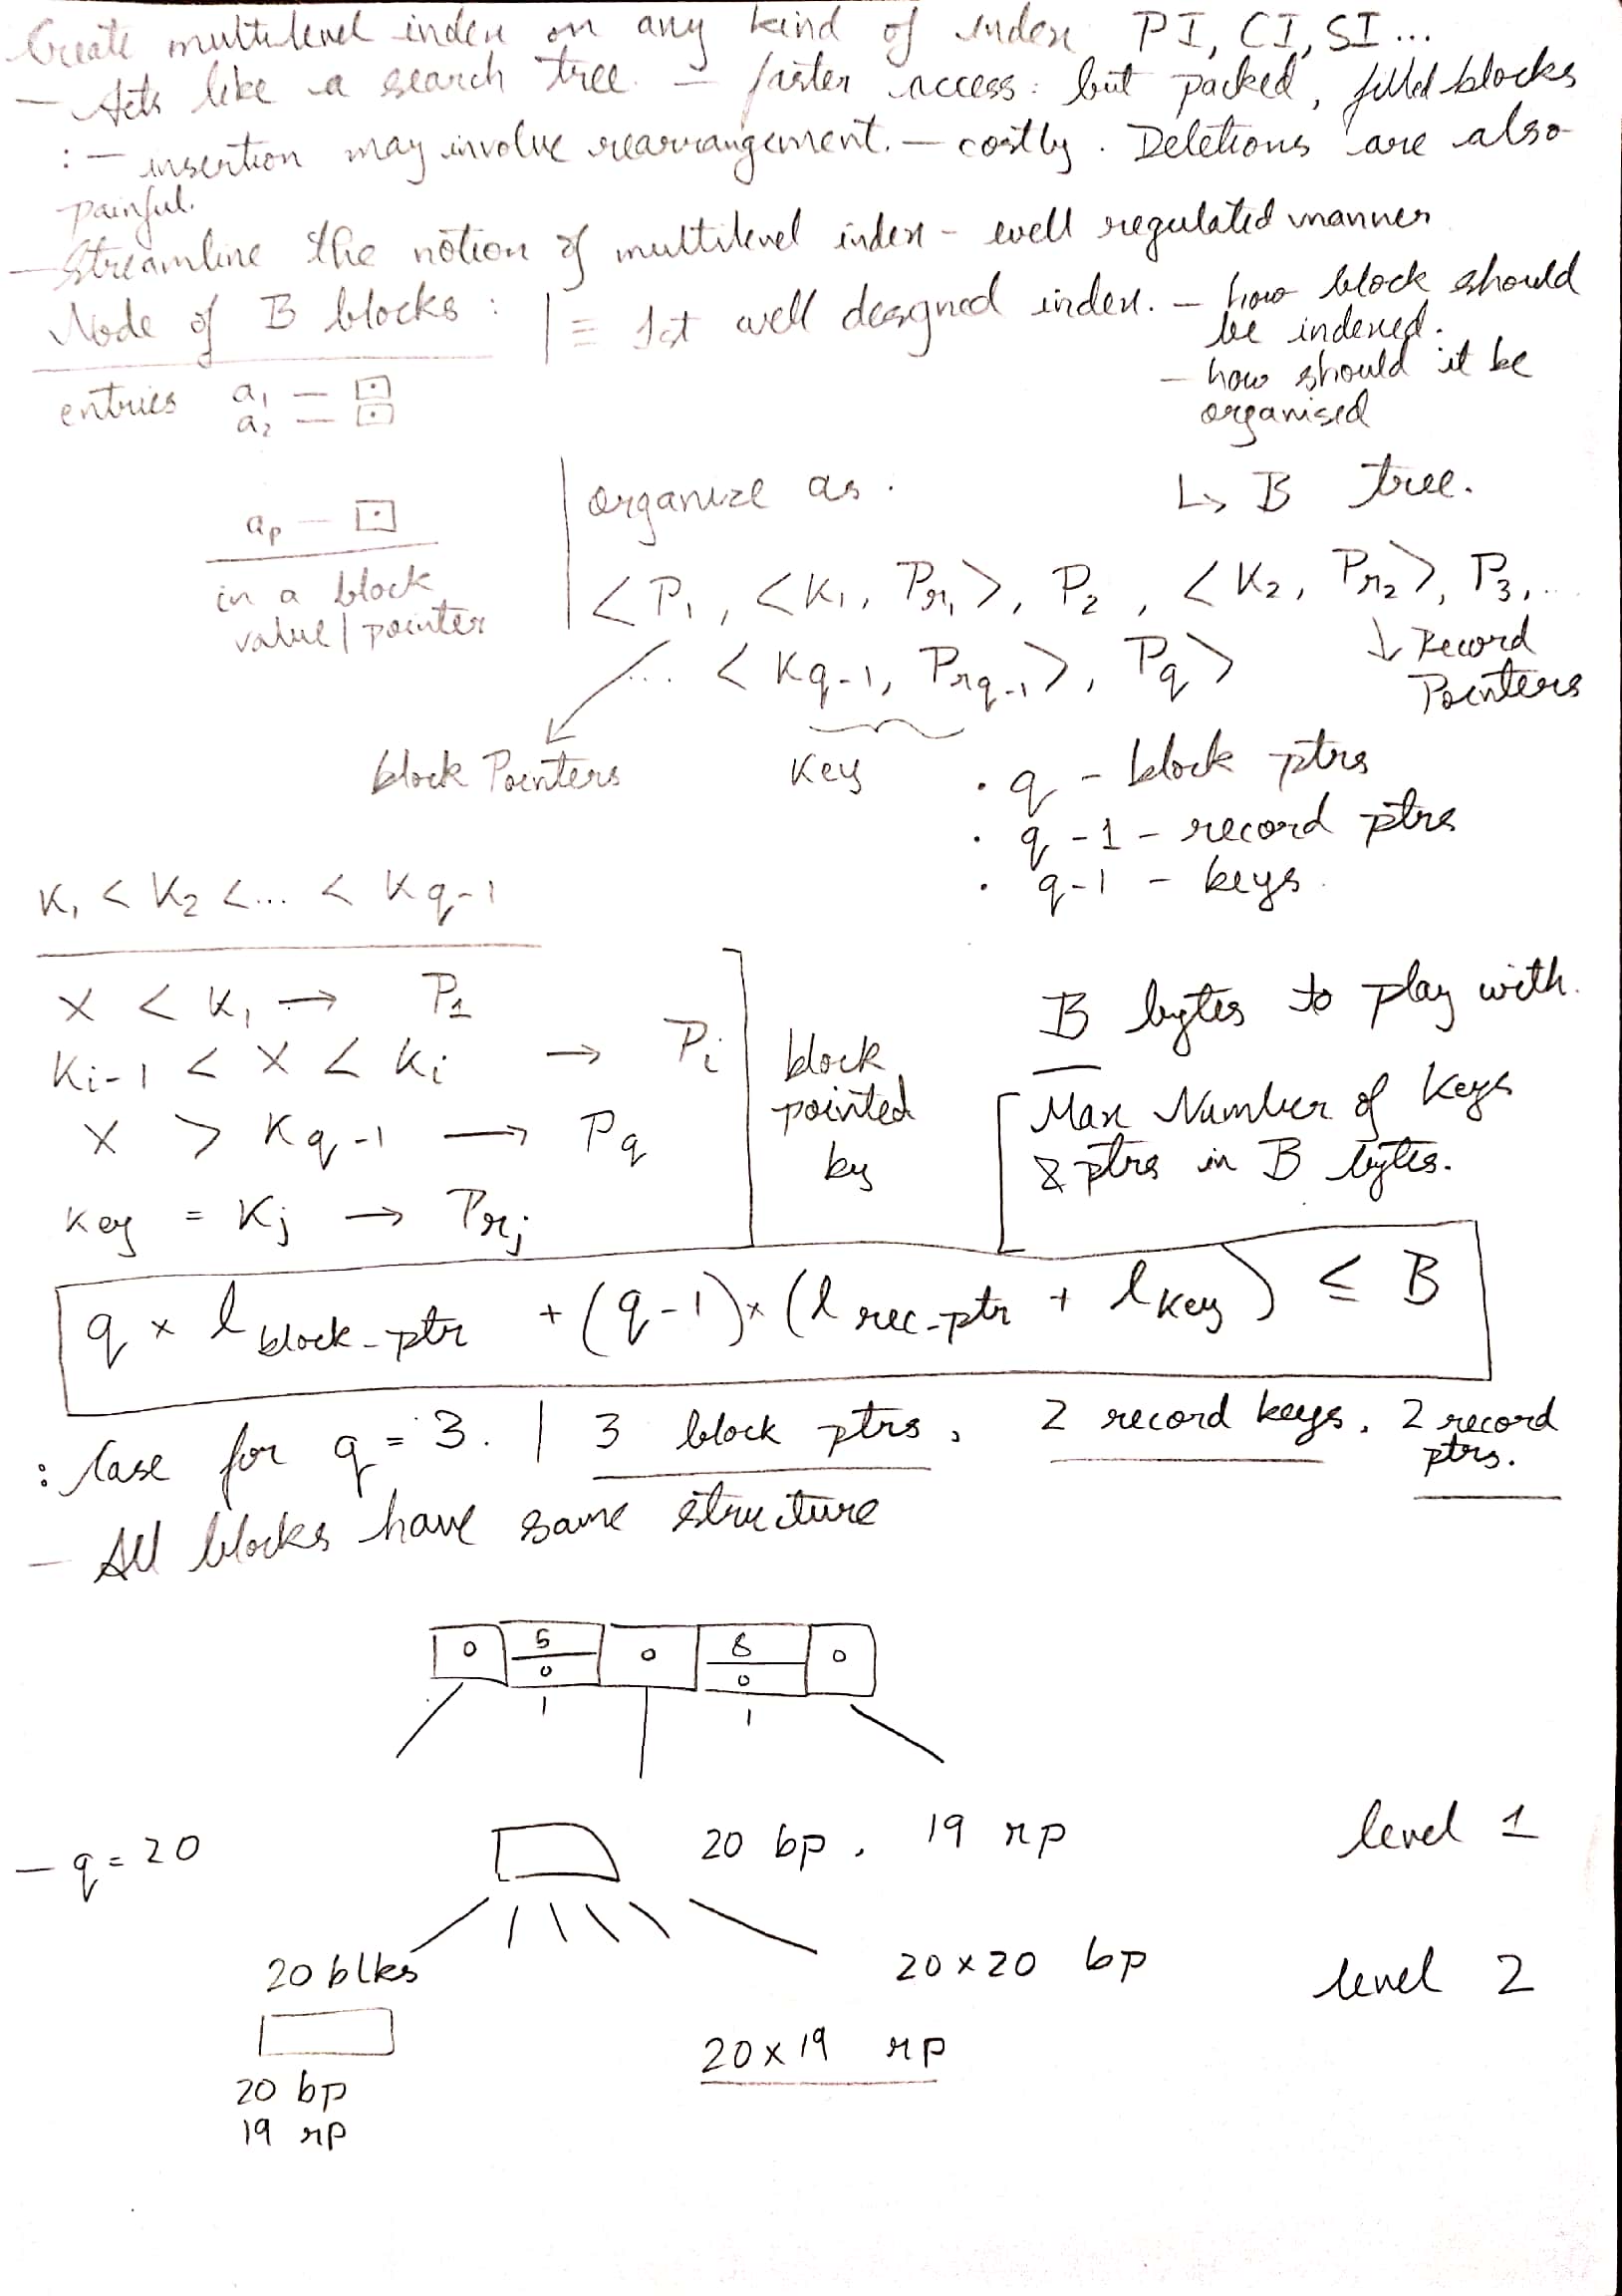 Create multilevel index on any kind of index PI, CI, SI...
- Acts like a search tree. - faster access: but packed, filled blocks
: - insertion may involve rearrangement. - costly. Deletions are also
painful.
- Streamline the notion of multilevel index - well regulated manner
Node of B blocks : | ≡ 1st well desgned index. - how block should
be indexed.
- how should it be
organised
entries a₁ - ⊡
a₂ - ⊡
aₚ - ⊡
in a block
value | pointer
organize as .
↳ B tree.
< P₁, <K₁, Pr₁>, P₂, <K₂, Pr₂>, P₃, ...
... <Kq-1, Prq-1>, Pq>
↓ Record
Pointers
block Pointers
Key
• q - block ptrs
• q-1 - record ptrs
• q-1 - keys.
K₁ < K₂ < ... < Kq-1
X < K₁ → P₁
Ki-1 < X < Ki → Pi
X > Kq-1 → Pq
Key = Kj → Prj
block
pointed
by
B bytes to play with.
Max Number of Keys
& ptrs in B bytes.
q × l block-ptr + (q-1) × (l rec-ptr + l key) ≤ B
: Case for q = 3. | 3 block ptrs, 2 record keys, 2 record
ptrs.
- All blocks have same structure
0 5 0 0 8 0 0
- q = 20
20 bp, 19 rp level 1
20 blks 20 × 20 bp level 2
20 × 19 rp
20 bp
19 rp